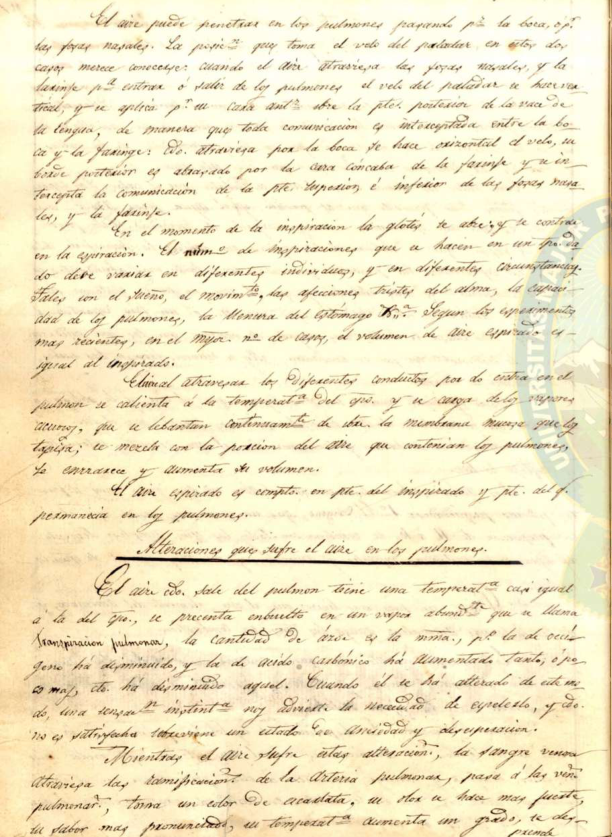 El aire puede penetrar en los pulmones pasando pr. la boca, ó pr.
las fosas nasales. La posicn. que toma el velo del paladar, en estos dos
casos merece conocerse: cuando el aire atraviesa las fosas nasales, y la
larinje pa. entrar ó salir de los pulmones el velo del paladar se hace ver
tical, y se aplica pr. su cara ante. sobre la pte. posterior de la vace de
la lengua, de manera que toda comunicacion es interceptada entre la bo-
ca y la farinje: cdo. atraviesa por la boca se hace orizontal el velo, su
borde posterior es abrasado por la cara cóncaba de la farinje y se in
tercepta la comunicacion de la pte. superior é inferior de las fosas nasa-
les, y la farinje.
En el momento de la inspiracion la glotis se abre, y se contrae
en la espiracion. El númo. de inspiraciones que se hacen en un tpo. da
do debe variar en diferentes individuos, y en diferentes circunstancias
tales son el sueño, el movimto., las afecciones tristes del alma, la capaci
dad de los pulmones, la llenura del estómago &a. Segun los esperimentos
mas recientes, en el myor. no. de casos, el volumen de aire espirado es
igual al inspirado.
El aire al atravesar los diferentes conductos por do entra en el
pulmon se calienta á la temperata. del cpo. y se carga de los vapores
acuosos, que se lebantan continuamte. de sbre. la membrana mucosa que los
tapisa; se mezcla con la porcion del aire que contenian los pulmones,
se enrrarece y aumenta su volumen.
El aire espirado es compto. en pte. del inspirado y pte. del q.
permanecia en los pulmones.
Alteraciones que sufre el aire en los pulmones.
El aire cdo. sale del pulmon tiene una temperata. casi igual
á la del cpo., se precenta enbuelto en un vapor abundte. que se llama
transpiracion pulmonar, la cantidad de azoe es la mma., po. la de occi
geno há disminuido, y la de acido carbónico há aumentado tanto, ó po-
co mas, cto. há disminuido aquel. Cuando él se há alterado de este mo-
do, una sensacn. instinta. nos advierte la necesidad de espelerlo, y cdo.
no es satisfecha sobreviene un estado de ancidad y desesperacion.
Mientras el aire sufre estas alteracions. la sangre venosa
atraviesa las ramificacions. de la arteria pulmonar, pasa á las vens.
pulmonars., toma un color de escarlata, su olor se hace mas fuerte,
su sabor mas pronunciado, su temperata. aumenta un grado, se des-
prende